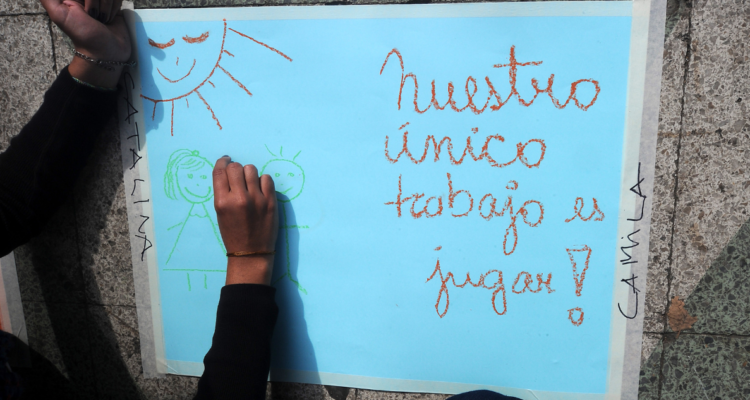 Nuestro
único
trabajo es
jugar!
CATALINA
CAMiLA